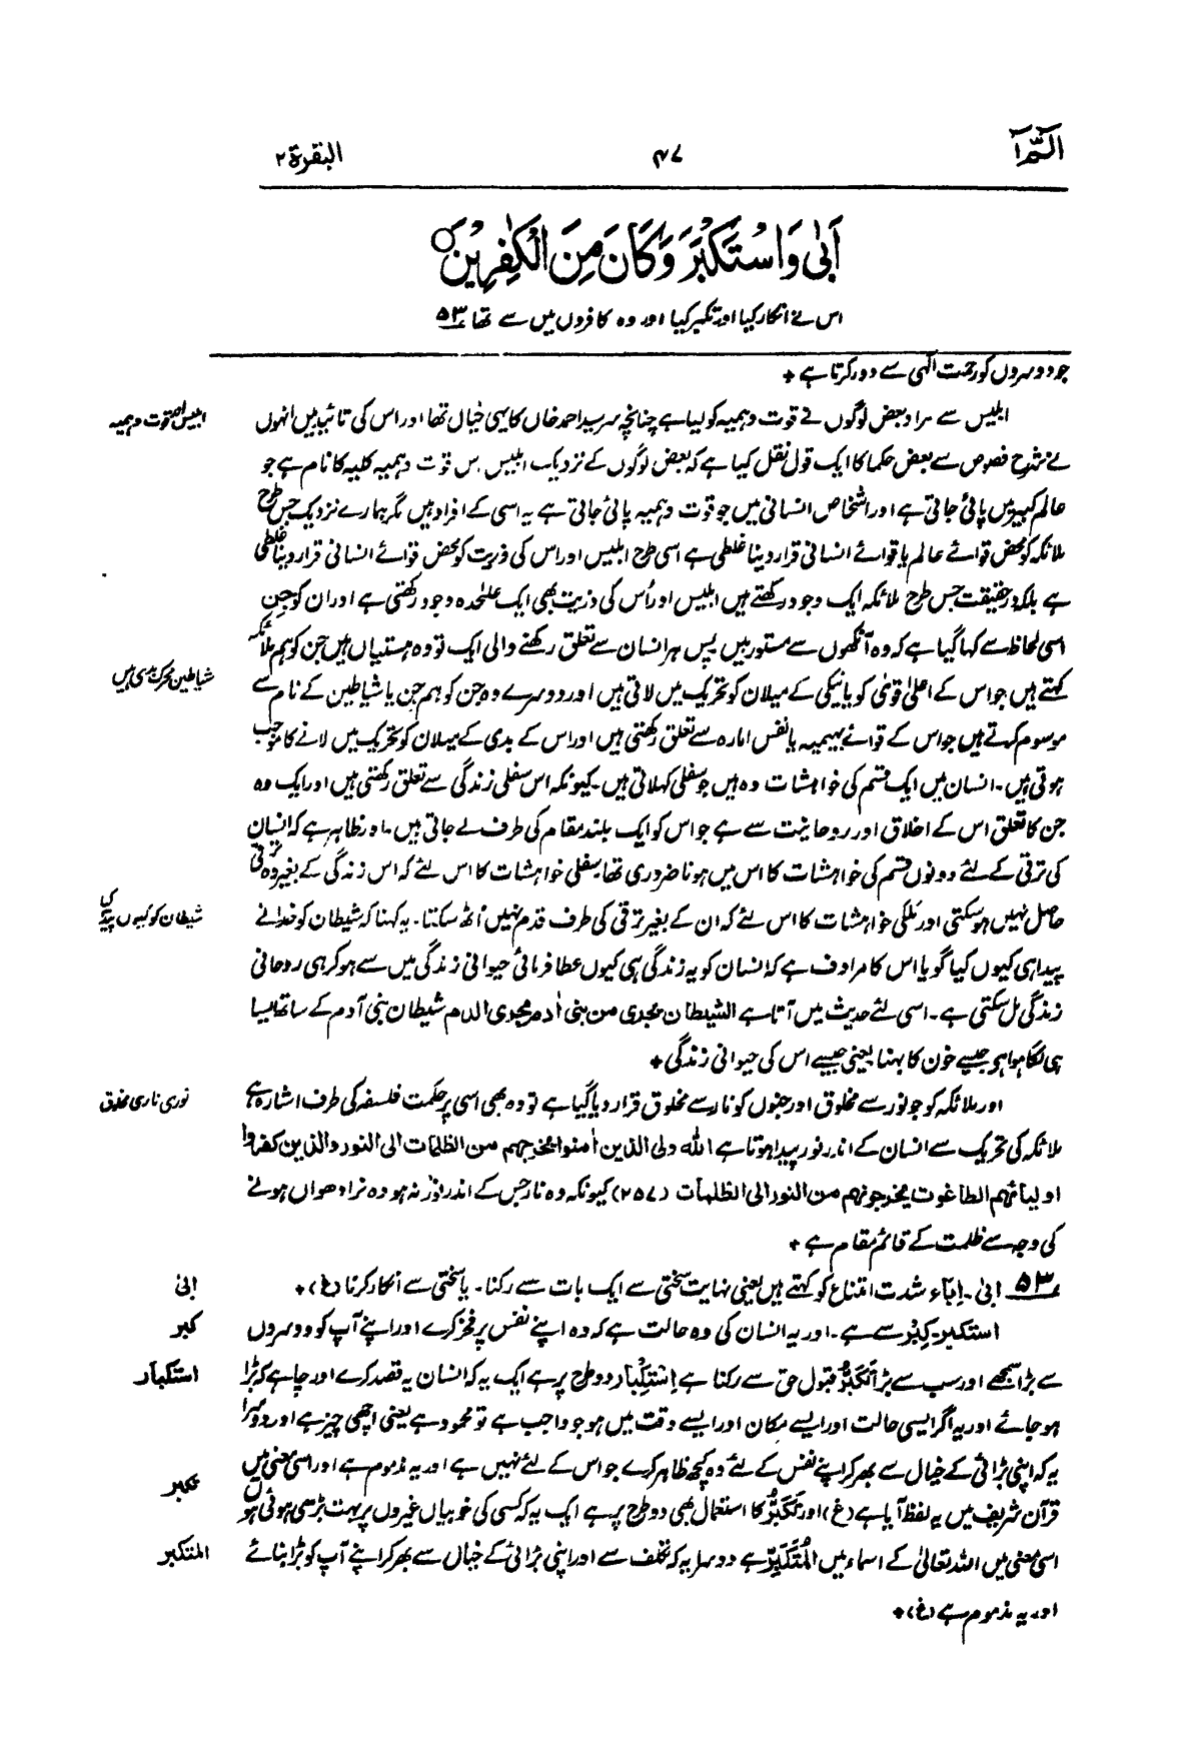 الٓمّٓ ١
٤٧
البقرة ٢
اَبٰى وَاسْتَكْبَرَ وَكَانَ مِنَ الْكٰفِرِيْنَ
اس نے انکار کیا اور تکبر کیا اور وہ کافروں میں سے تھا ۵۳
جو دوسروں کو رحمت الٰہی سے دور کرتا ہے +
ابلیس سے مراد بعض لوگوں نے قوت وہمیہ کو لیا ہے چنانچہ سرسید احمد خاں کا یہی خیال تھا اور اس کی تائید میں انہوں
ابلیس اور قوت وہمیہ
نے شرح فصوص سے بعض حکما کا ایک قول نقل کیا ہے کہ بعض لوگوں کے نزدیک ابلیس بس قوت وہمیہ کلیہ کا نام ہے جو
عالم کبیر میں پائی جاتی ہے اور اشخاص انسانی میں جو قوت وہمیہ پائی جاتی ہے یہ اسی کے افراد ہیں مگر ہمارے نزدیک جس طرح
ملائکہ کو محض قوائے عالم یا قوائے انسانی قرار دینا غلطی ہے اسی طرح ابلیس اور اس کی ذریت کو محض قوائے انسانی قرار دینا غلطی
ہے بلکہ در حقیقت جس طرح ملائکہ ایک وجود رکھتے ہیں ابلیس اور اُس کی ذریت بھی ایک علیحدہ وجود رکھتی ہے اور ان کو جن
اسی لحاظ سے کہا گیا ہے کہ وہ آنکھوں سے مستور ہیں پس ہر انسان سے تعلق رکھنے والی ایک تو وہ ہستیاں ہیں جن کو ہم ملائکہ
کہتے ہیں جو اس کے اعلیٰ قویٰ کو یا نیکی کے میلان کو تحریک میں لاتی ہیں اور دوسرے وہ جن کو ہم جن یا شیاطین کے نام سے
شیاطین محرک بدی ہیں
موسوم کرتے ہیں جو اس کے قوائے بہیمیہ یا نفس امارہ سے تعلق رکھتی ہیں اور اس کے بدی کے میلان کو تحریک میں لانے کا موجب
ہوتی ہیں۔ انسان میں ایک قسم کی خواہشات وہ ہیں جو سفلی کہلاتی ہیں۔ کیونکہ اس سفلی زندگی سے تعلق رکھتی ہیں اور ایک وہ
جن کا تعلق اس کے اخلاق اور روحانیت سے ہے جو اس کو ایک بلند مقام کی طرف لے جاتی ہیں۔ اور ظاہر ہے کہ انسان
کی ترقی کے لئے دونوں قسم کی خواہشات کا اس میں ہونا ضروری تھا سفلی خواہشات کا اس لئے کہ اس زندگی کے بغیر وہ ترقی
حاصل نہیں ہو سکتی اور مَلکی خواہشات کا اس لئے کہ ان کے بغیر ترقی کی طرف قدم نہیں اُٹھ سکتا۔ یہ کہنا کہ شیطان کو خدا نے
شیطان کو کیوں پیدا کیا
پیدا ہی کیوں کیا گویا اس کا مرادف ہے کہ انسان کو یہ زندگی ہی کیوں عطا فرمائی حیوانی زندگی میں سے ہو کر ہی روحانی
زندگی مل سکتی ہے۔ اسی لئے حدیث میں آتا ہے الشیطان یجری من بنی اٰدم مجری الدم شیطان بنی آدم کے ساتھ ایسا
ہی لگا ہوا ہو جیسے خون کا بہنا یعنی جیسے اس کی حیوانی زندگی +
اور ملائکہ کو جو نور سے مخلوق اور جنوں کو نار سے مخلوق قرار دیا گیا ہے تو وہ بھی اسی پر حکمت فلسفہ کی طرف اشارہ ہے
نوری ناری مخلوق
ملائکہ کی تحریک سے انسان کے اندر نور پیدا ہوتا ہے اللہ ولی الذین اٰمنوا یخرجہم من الظلمات الی النور والذین کفروا
اولیاءهم الطاغوت یخرجونہم من النور الی الظلمات (۲۵۷) کیونکہ وہ نار جس کے اندر نور نہ ہو وہ نرا دھواں ہونے
کی وجہ سے ظلمت کے قائم مقام ہے +
۵۳ ابیٰ۔ اِبَاء شدت امتناع کو کہتے ہیں یعنی نہایت سختی سے ایک بات سے رکنا۔ یا سختی سے انکار کرنا (غ) +
ابیٰ
استکبر۔ کِبْر سے ہے۔ اور یہ انسان کی وہ حالت ہے کہ وہ اپنے نفس پر فخر کرے اور اپنے آپ کو دوسروں
کبر
سے بڑا سمجھے اور سب سے بڑا تَکَبُّر قبول حق سے رکنا ہے اِسْتِکْبَار دو طرح پر ہے ایک یہ کہ انسان یہ قصد کرے اور چاہے کہ بڑا
استکبار
ہو جائے اور یہ اگر ایسی حالت اور ایسے مکان اور ایسے وقت میں ہو جو واجب ہے تو محمود ہے یعنی اچھی چیز ہے اور دوسرا
یہ کہ اپنی بڑائی کے خیال سے بھر کر اپنے نفس کے لئے وہ کچھ ظاہر کرے جو اس کے لئے نہیں ہے اور یہ مذموم ہے اور اسی معنی میں
تکبر
قرآن شریف میں یہ لفظ آیا ہے (غ) اور تَکَبُّر کا استعمال بھی دو طرح پر ہے ایک یہ کہ کسی کی خوبیاں غیروں پر بہت بڑھی ہوئی ہوں
اسی معنی میں اللہ تعالیٰ کے اسماء میں الْمُتَکَبِّر ہے دوسرا یہ کہ تکلف سے اور اپنی بڑائی کے خیال سے بھر کر اپنے آپ کو بڑا بنائے
المتکبر
اور یہ مذموم ہے (غ) +